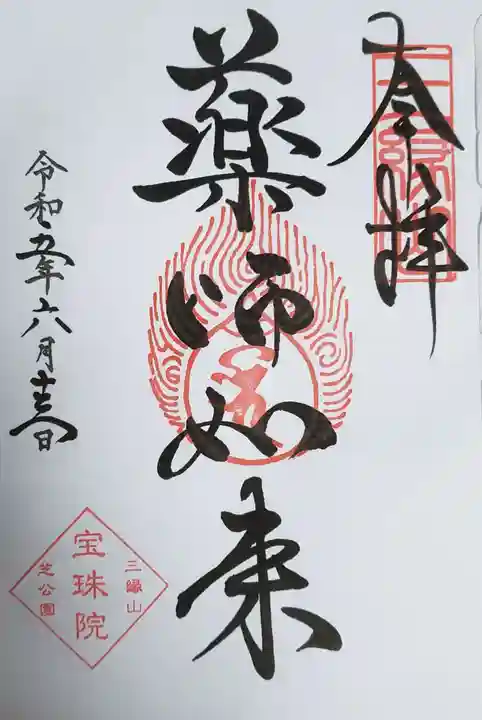 奉拝
三縁山
薬師如来
令和五年六月十三日
三縁山
宝珠院
芝公園